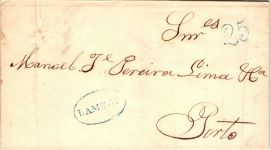 Snres 25
Manoel Je Pereira Lima & Ca
LAMEGO
Porto